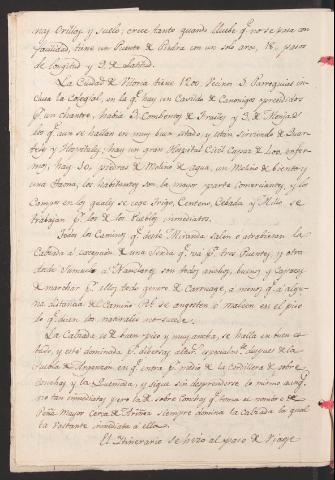 nas Orillas y suelo; crece tanto quando llueve q.e no se pasa con
facilidad, tiene un Puente de Piedra con un solo arco, 18, pasos
de longitud y 3. de Latitud.
La Ciudad de Vitoria tiene 1200. Vecinos 5 Parroquias in-
clusa la Colegial, en la q.e hay un Cavildo de Canonigos presididos
p.r un chantre, habia 3. Combentos de Frailes y 3. de Monjas
los q.e aun se hallan en muy buen estado, y estan sirviendo de Quar-
teles y Hospitales; hay un gran Hospital Civil capaz de 400. enfer-
mos, hay 30. piedras de Molino de agua, un Molino de biento y
una Taona, los habitantes son la mayor parte comerciantes, y los
Campos en los quales se coge Trigo, Centeno, Cebada y Millo se
trabajan p.r los de los Pueblos inmediatos.
Todos los Caminos q.e desde Miranda salen o atrabiesan la
Calzada a excepcion de una Senda q.e va p.r tres Puentes, y otra
desde a Nanclares son todos anchos, buenos y capaces
de marchar p.r ellos todo genero de Carruage, a menos q.e a algu-
na distancia del Camino R.l se angosten o maleen en el piso
lo q.e dicen los naturales no sucede.
La Calzada es de buen piso y muy ancha, se halla en buen es-
tado, y está dominada p.r diversas alturas especialm.te despues de la
Puebla de Arganzon en q.e entra p.r medio de la cordillera de sobre
Conchas y la Quemada, y sigue sin desprenderse lo mismo aunq.e
no tan inmediatas pero la de sobre Conchas q.e toma el nombre de
Peña Mayor cerca de Ariñez siempre domina la Calzada lo qual
la bastante inmediata a ella.
El Itinerario se hizo al paso de Viage